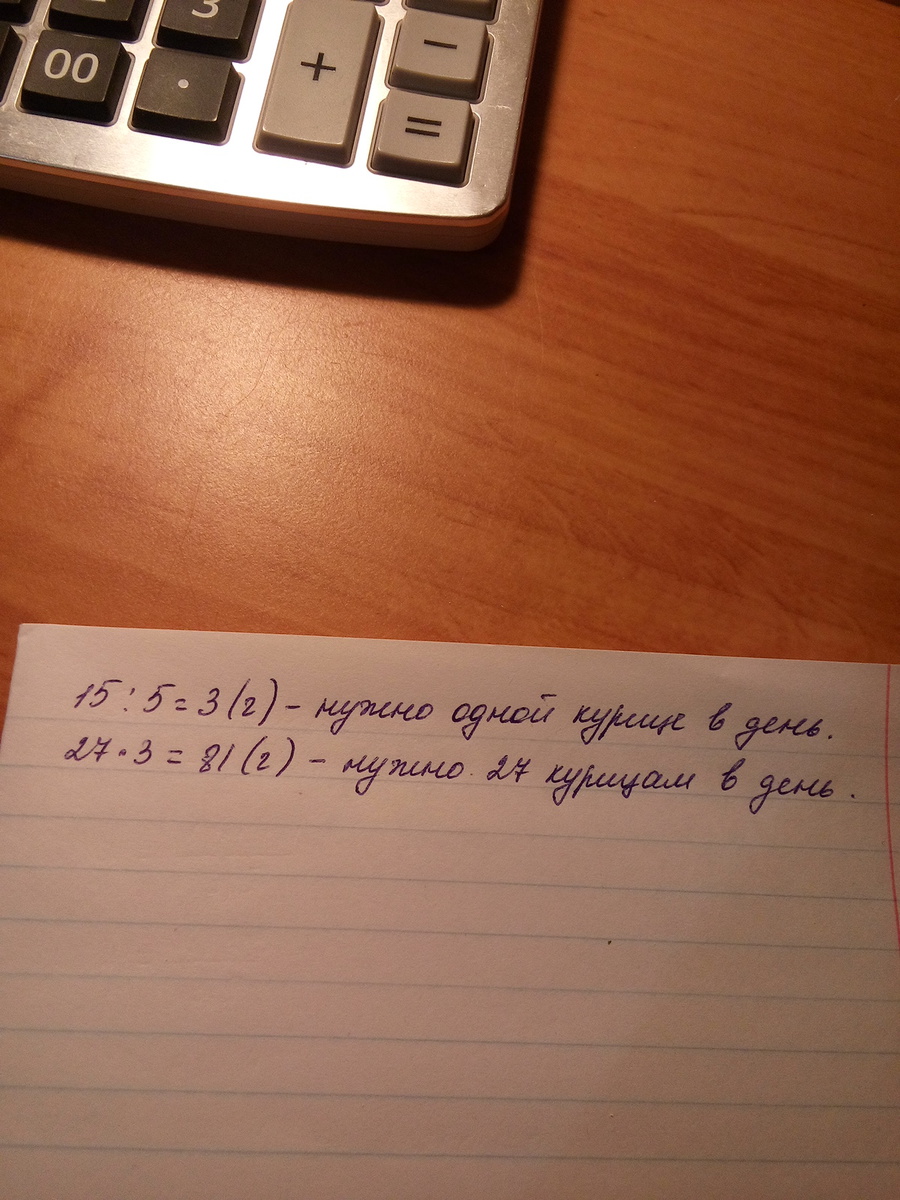 3
00
.
+
−
=
15 : 5 = 3 (г) – нужно одной курице в день.
27 · 3 = 81 (г) – нужно 27 курицам в день.